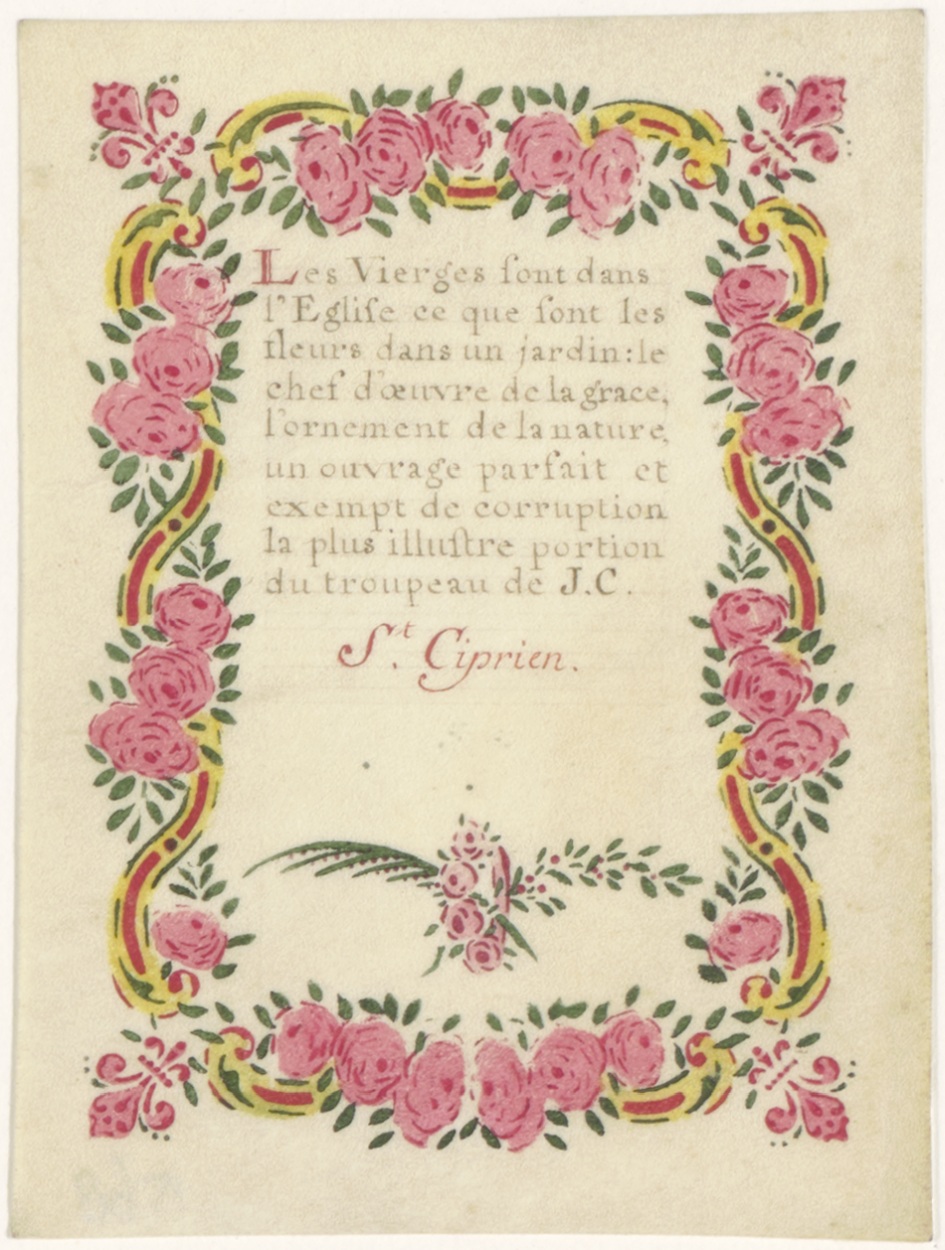 Les Vierges ſont dans
l'Egliſe ce que ſont les
fleurs dans un jardin: le
chef d'œuvre de la grace,
l'ornement de la nature,
un ouvrage parfait et
exempt de corruption
la plus illuſtre portion
du troupeau de J.C.
S.t Ciprien.